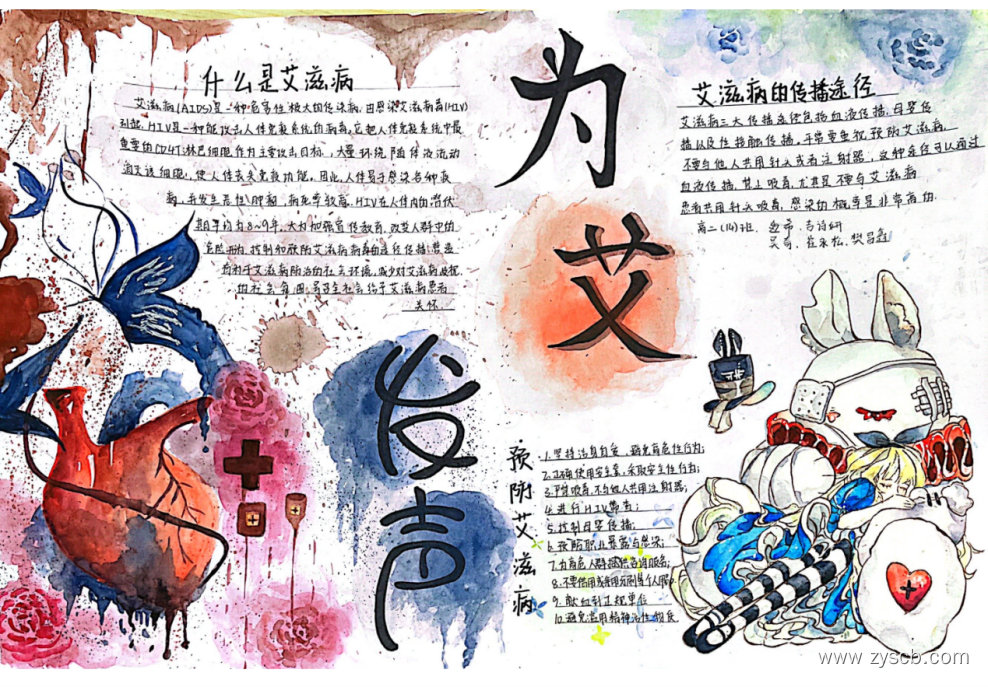 什么是艾滋病
艾滋病(AIDS)是一种危害性极大的传染病,由感染艾滋病病毒(HIV)
引起,HIV是一种能攻击人体免疫系统的病毒。它把人体免疫系统中最
重要的CD4T淋巴细胞作为主要攻击目标,大量
该细胞,使人体丧失免疫功能。因此,人体易于感染各种疾
病,并发生恶性肿瘤,病死率较高。HIV在人体内的潜伏
期平均为8~9年,大力加强宣传教育,改变人群中的
危险行为,控制和预防艾滋病病毒的 传播,营造
有利于艾滋病防治的社会环境,减少对艾滋病歧视
的社会氛围,号召全社会给予艾滋病患者
关怀
为
艾
发
声
艾滋病的传播途径
艾滋病三大传播途径包括血液传播、母婴传
播以及性接触传播,平常要重视预防艾滋病,
不要与他人共用针头或者注射器,这种途径可以通过
血液传播,禁止吸毒,尤其是不要与艾滋病
患者共用针头吸毒,感染的概率是非常高的.
高二(14)班
预防艾滋病
1.坚持洁身自爱、避免高危性行为;
2.正确使用安全套,采取安全性行为;
3.严禁吸毒,不与他人共用注射器;
4.进行HIV筛查;
5.控制母婴传播;
6.预防职业暴露与感染;
7.为高危人群提供咨询服务;
8.不要借用或共用 个人用品.
9.献血到正规单位
10.避免滥用精神活性物质
www.zyscb.com